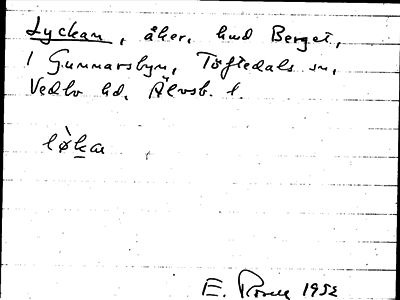 Lyckan, åker, hmd Berget,
i Gunnarsbyn, Töftedals sn,
Vedbo hd. Älvsb. l.
lø̀ka
E. 1952